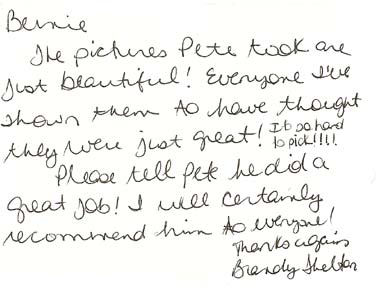 Bernie
The pictures Pete took are
just beautiful! Everyone I've
shown them to have thought
they were just great! It so hard
to pick!!!!
Please tell Pete he did a
great job! I will certainly
recommend him to everyone!
Thanks again
Brandy Shelton